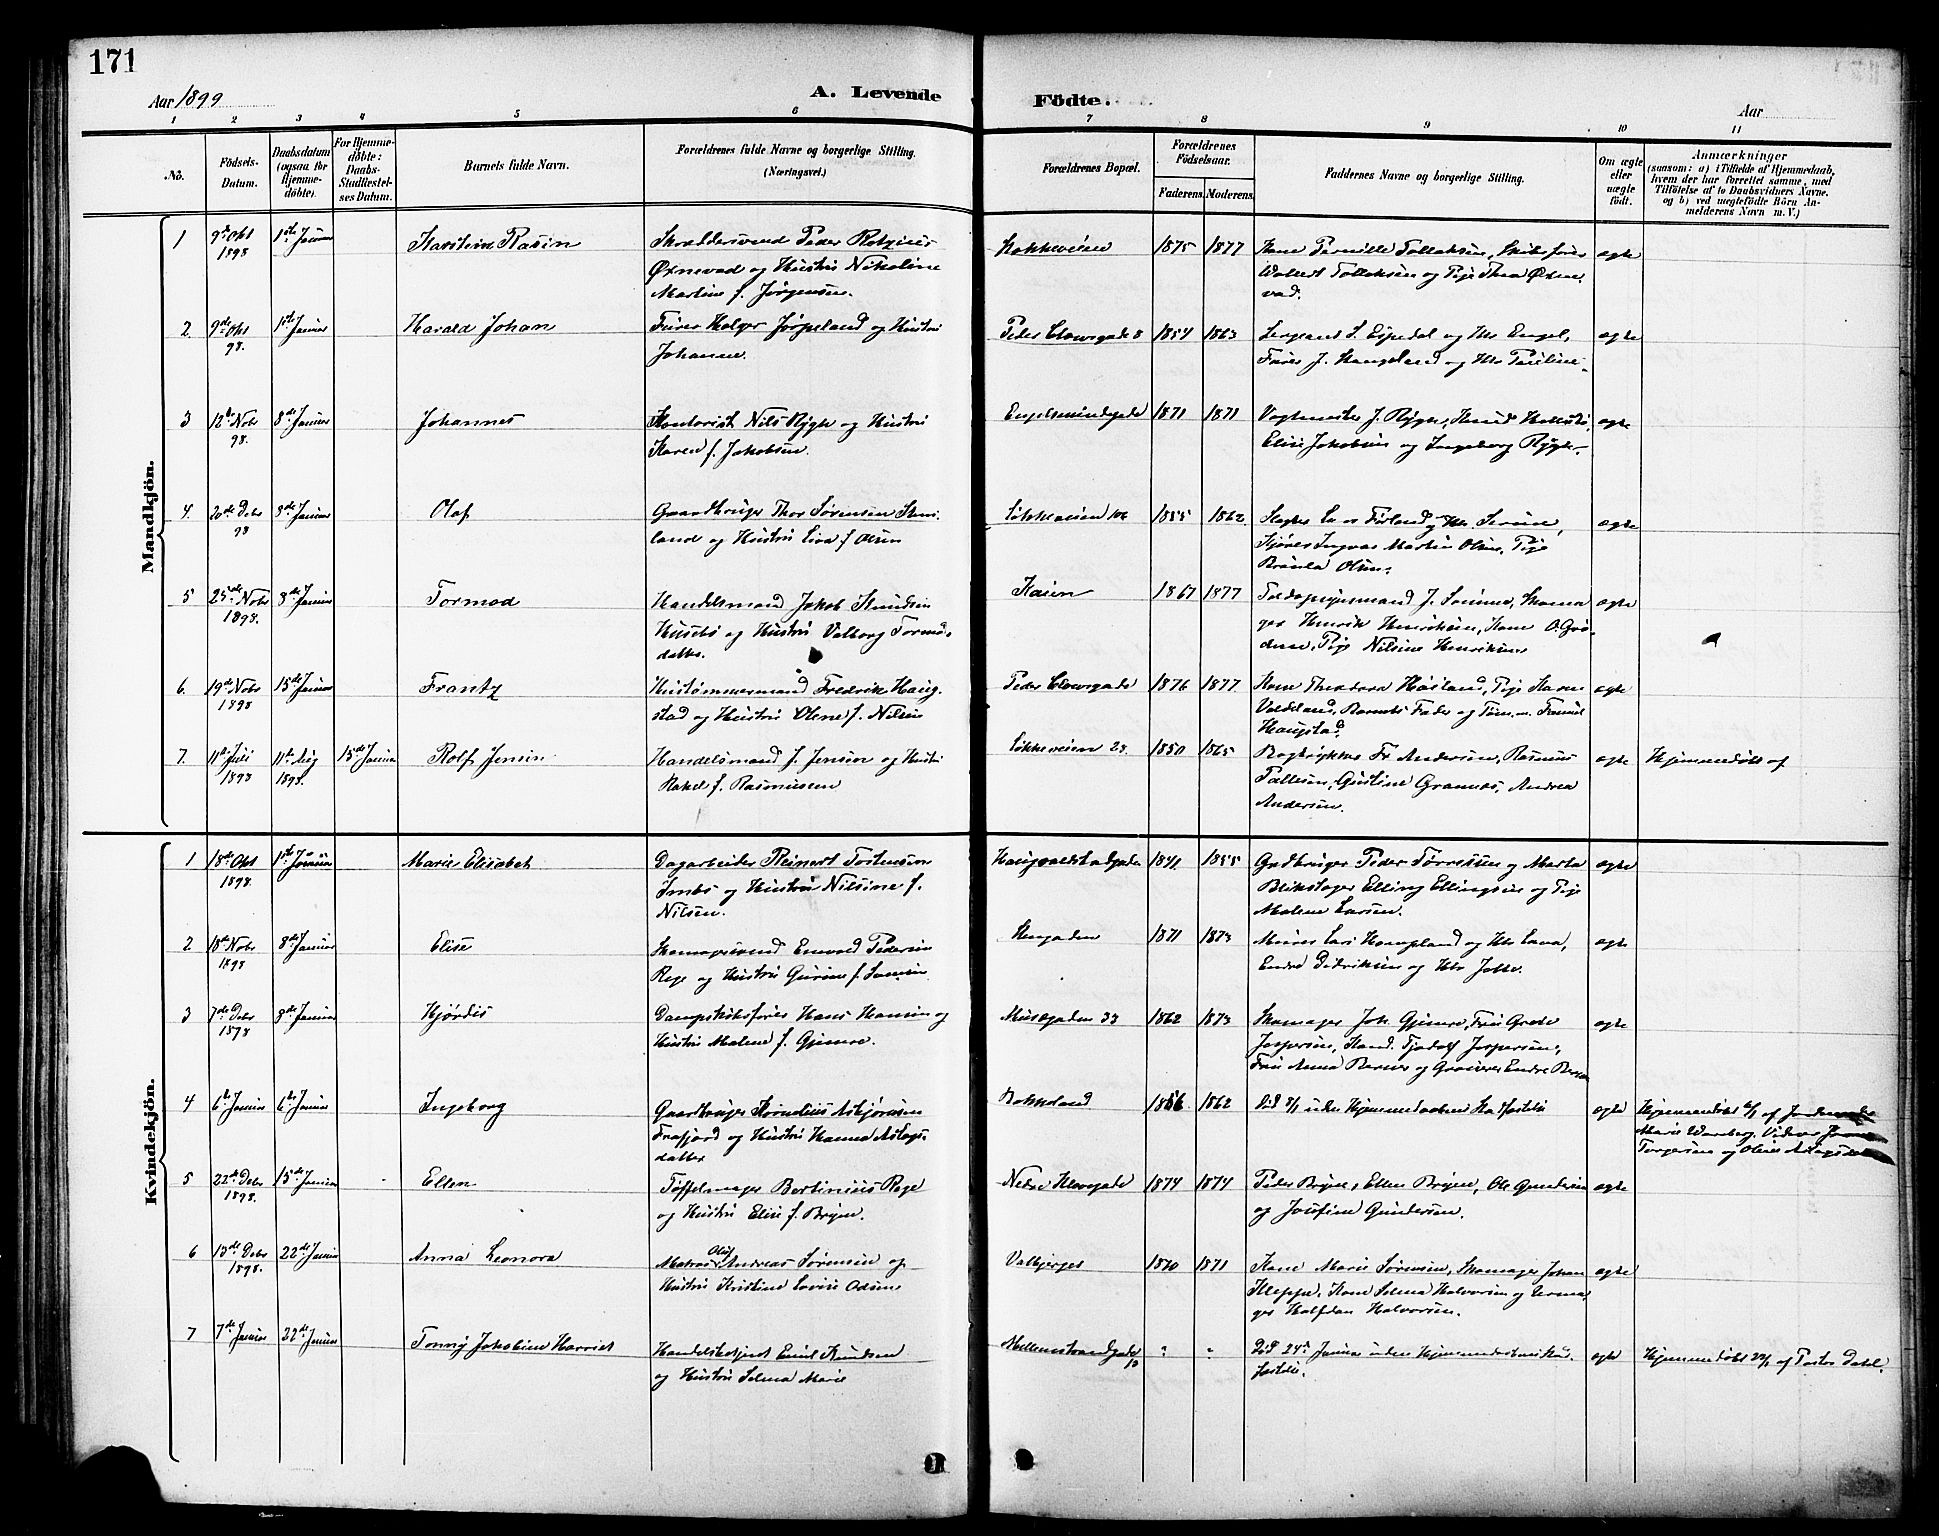 171
Aar 1899
A. Levende
Födte.
Aar
1 2 3 4 5 6 7 8 9 10 11
No.
Födsels-
Datum.
Daabsdatum
(ogsaa for
Hjemme-
döbte).
For Hjemme-
döbte:
Daabs-
Stadfæstel-
ses Datum.
Barnets fulde Navn.
Forældrenes fulde Navne og borgerlige Stilling.
(Næringsvei.)
Forældrenes Bopæl.
Forældrenes
Födselsaar.
Faderens. Moderens.
Faddernes Navne og borgerlige Stilling.
Om ægte
eller
uægte
födt.
Anmærkninger
(saasom: a) i Tilfælde af Hjemmedaab,
hvem der har forrettet samme, med
Tilföielse af to Daabsvidners Navne.
og b) ved uægtefödte Börn An-
melderens Navn m. V.)
Mandkjön.
1 9de Okt 1898 1ste Januar Karsten Rasin
Skræddersvend Peder
Øxnevad og Hustru Nikoline
Martine f. Jørgensen.
Løkkeveien 1875 1877
Kone Pernille Tollaksen, Skibsfører
Tollaksen og Pige Thea Øxne-
vad.
ægte
2. 9de Okt 98. 1ste Januar Harald Johan
Feier Holger Jørpeland og Hustru
Johanne
Peder Clowsgade 8 1854 1863
Sergeant S. Espedal og Hs Engel,
J. Haugeland og Hs Pauline
ægte
3 12te Nobr 98. 8de Januar Johannes
Kontorist Nils Rygh og Hustru
Karen f. Jakobsen.
Engelsmindegade 1871 1871
Vagtmester J. Rygh,
Elise Jakobsen og Ingeborg Rygh.
ægte
4. 20de Debr 98 8de Januar Olaf
Gaardbruger Thor Sørensen
land og Hustru f Olsen
Løkkeveien 106 1855 1862
Slagter Førland og Hs. Serine,
Kjører Ingvar Martin Olsen, Pige
Olsen.
ægte
5 25de Nobr 1898. 8de Januar Tormod
Handelsmand Jakob Knudsen
Husebø og Hustru Valborg Tormods-
datter.
1867 1877
J. Sømme, Skoma
ger Henrik Henriksen, Kone O. Grø-
Pige Nilsine Henriksen
ægte
6. 19de Nobr 1898 15de Januar Frantz
Hustømmermand Fredrik Haug-
stad og Hustru Olene f. Nilsen
Peder Clowsgade 1876 1877
Kone Theodora Høiland, Pige Karen
Voldeland, Barnets Fader og Tøm.m. Samuel
Haugstad.
ægte
7. 11te Juli 1898 11te Aug 1898. 15de Januar Rolf Jensen
Handelsmand J. Jensen og Hustru
Rakel f. Rasmussen
Løkkeveien 23. 1850 1865
Bogtrykker Fr Andersen, Rasmus
Tallesen, Gustine Grannes, Andrea
Andersen.
ægte Hjemmedøbt af
Kvindekjön.
1 18de Okt 1898. 1ste Januar Marie Elisabet
Dagarbeider Reinert Torstensen
Imbs og Hustru Nilsine f.
Nilsen.
Haugvaldstadgaden 1841. 1855
Gdbruger Peder Tørresen og Marta
Blikslager Elling Ellingsen og Pige
Malene Larsen.
ægte
2 18de Nobr 1898 8de Januar Elise
Skomagersvend Enevald Pedersen
Rege og Hustru Gurine f.
Stengaden 1871 1873
Murer Lars og Hs Lava,
Endre Didriksen og Hs
ægte
3 7de Debr 1898 8de Januar Hjørdis
Dampskibsfører Hans Hansen og
Hustru Malene f. Gjemre.
Musegaden 33 1862 1873
Skomager Joh. Gjemre, Fru Grete
Jespersen, Kand. Jespersen,
Fru Anna Berner og Graverer Endre Bersen
ægte
4 6te Januar 6te Januar Ingeborg
Gaardbruger Kornelius Asbjørnsen
Frafjord og Hustru Hanna Aslags-
datter
Bekkeland 1856 1862
Død 8/1 uden Hjemmedaabens Stadfæstelse
ægte
Hjemmedøbt 6/1 af Jordemoder
Marie Warberg. Vidner
Torgersen og Oline Aslagsdatter
5 22de Debr 1898. 15de Januar Ellen
Tøffelmager Bertinius Rege
og Hustru Elise f. Bryne.
Nedre Kleivegade 1874 1874
Peder Bryne, Ellen Bryne, Ole Gundersen
og Josefine Gundersen.
ægte
6 13de Debr 1898. 22de Januar Anna Leonora
Olaf
Matros Andreas Sørensen og
Hustru Kristine Lovise Odsen
Valbjerget 1870 1871
Kone Marie Sørensen, Skomager Johan
Kleppe. Kone Selma Halvorsen og Urma-
ger Halfdan Halvorsen.
ægte
7 7de Januar 22de Januar Tonny Jakobine Harriet
Handelsbetjent Emil Knudsen
og Hustru Selma Marie
Mellemstraedgade
" "
Død 24de Januar uden Hjemmedaabens Stad-
fæstelse.
ægte Hjemmedøbt 22/1 af Pastor Dahl.